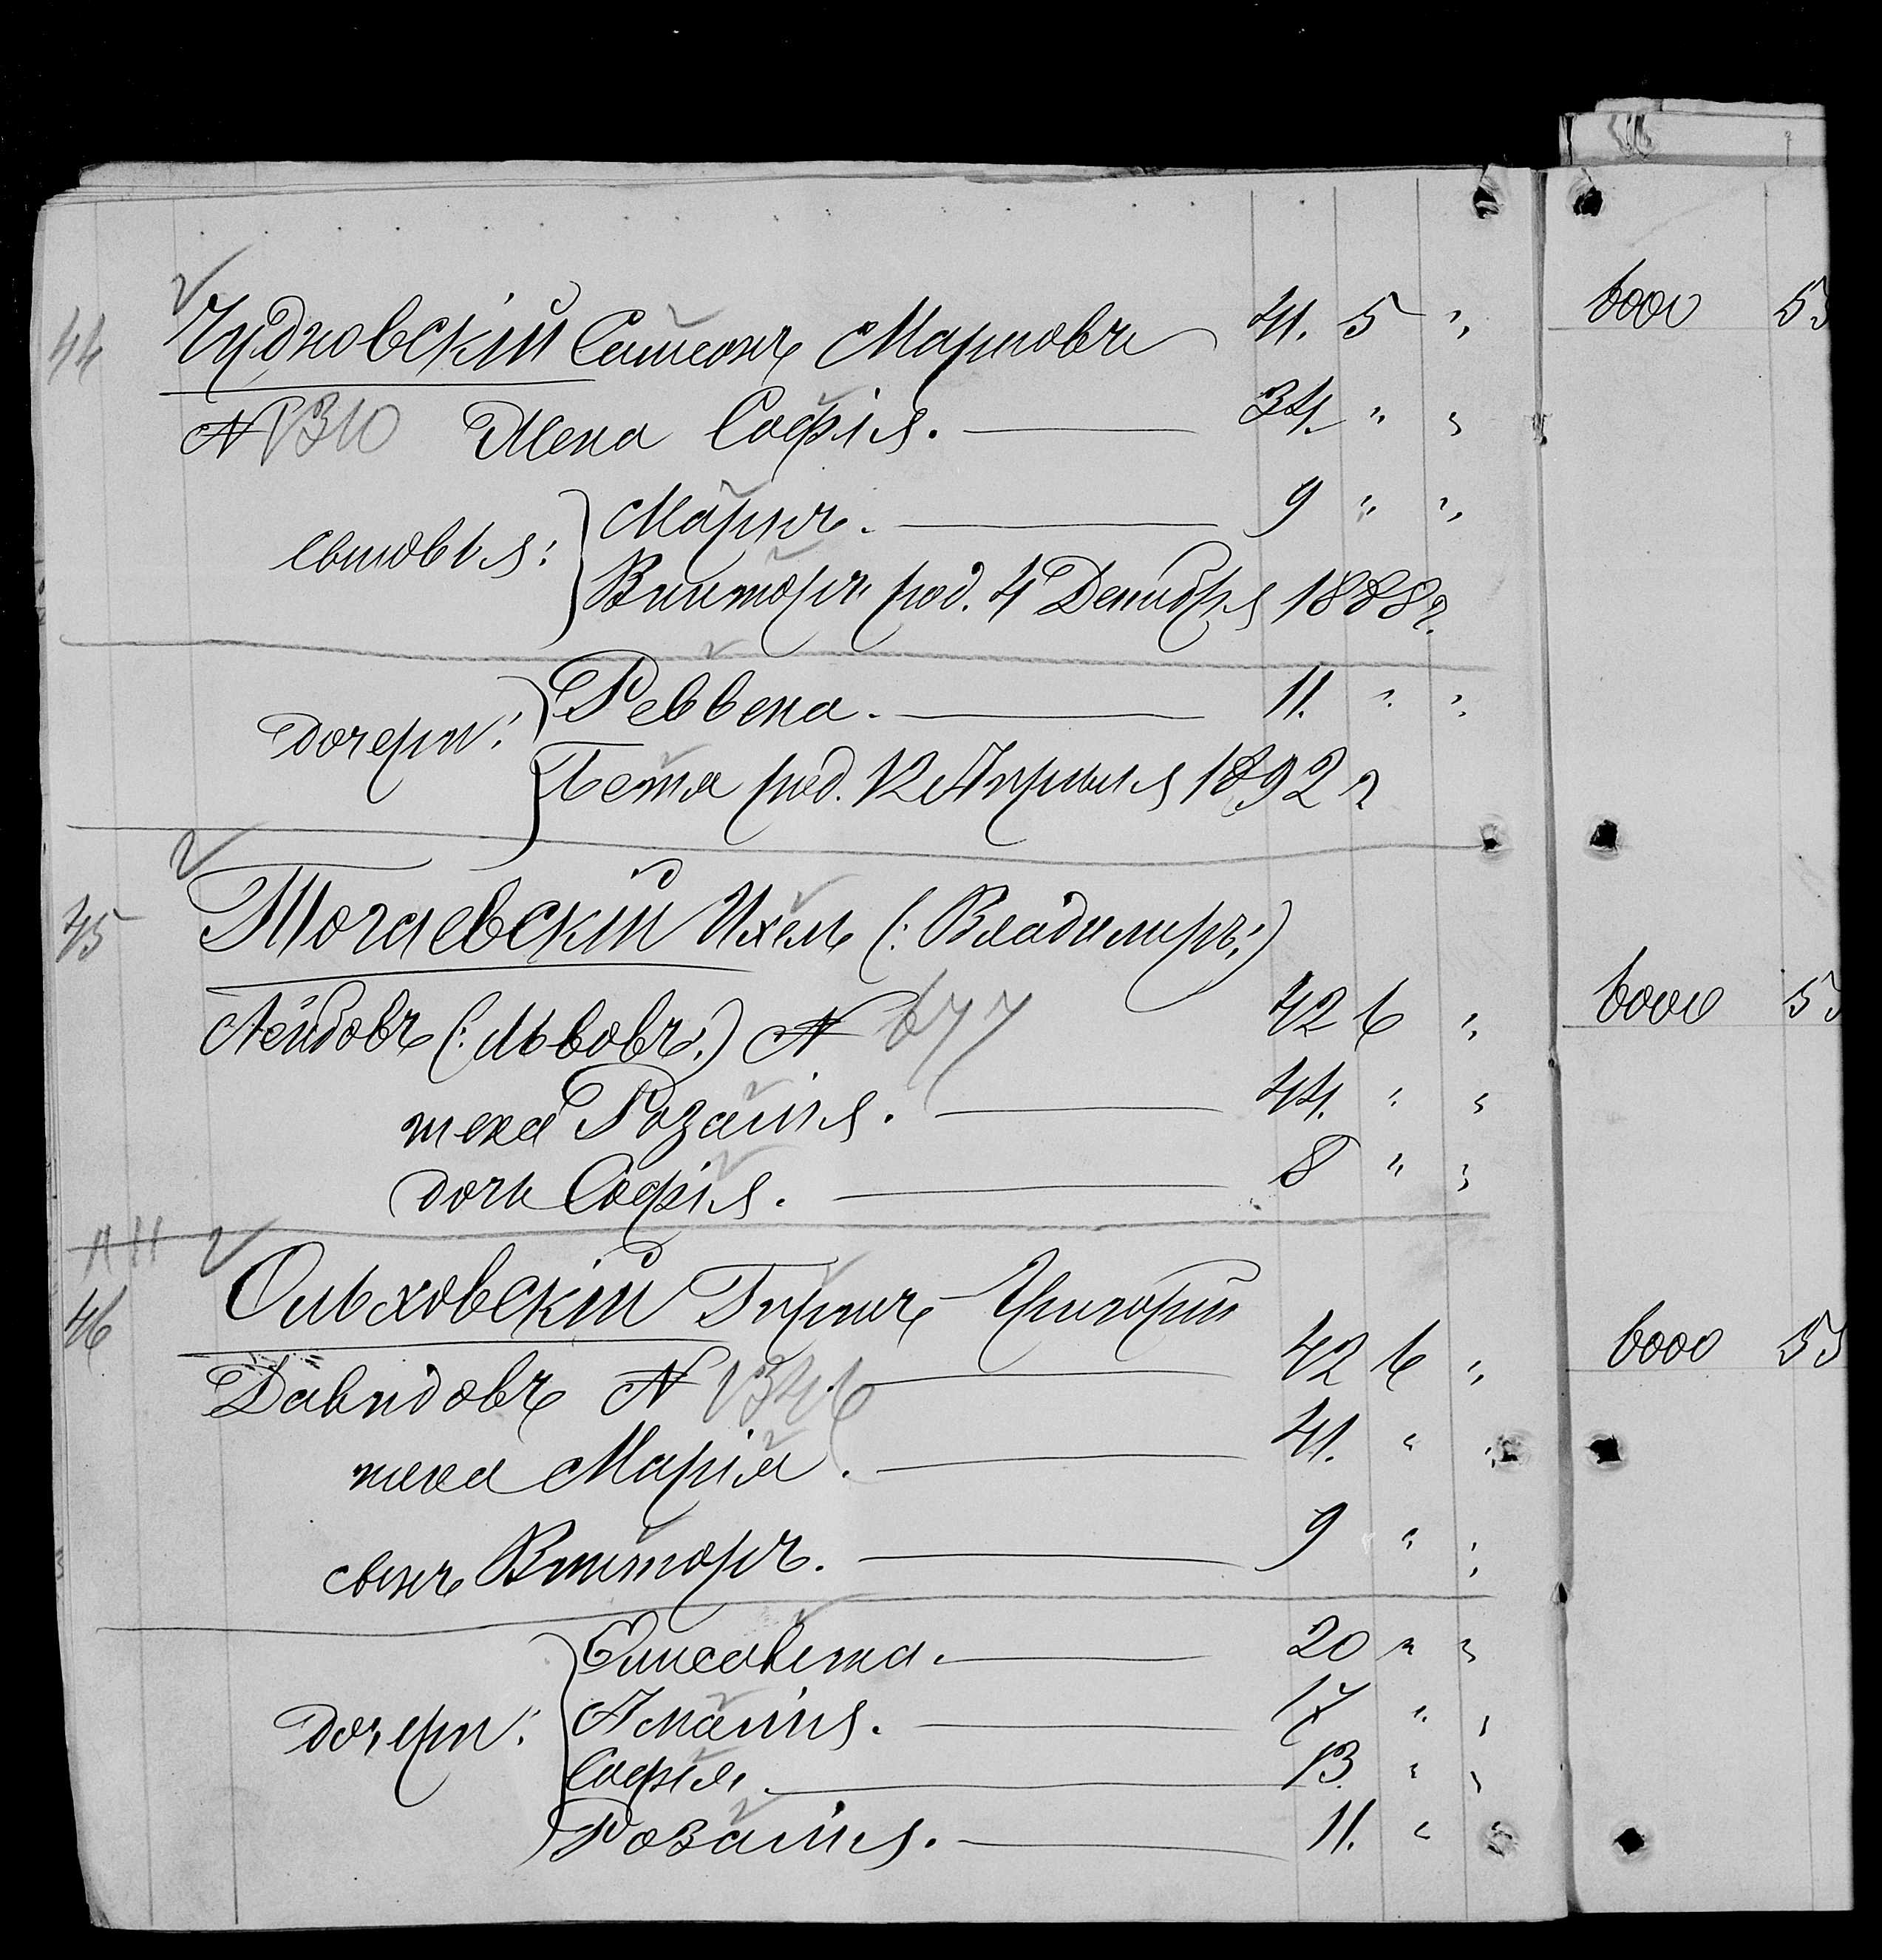 44 Чудновскій Самсонъ Марковъ 41. 5 " 6000 55
№ 1310 Жена Софія. 34. " "
сыновья: Маркъ. 9 " "
Викторъ род. 4 Декабря 1888 г.
дочери: Реввека. 11. " "
Бетя род. 12 Апрѣля 1892 г
45 Тогаевскій Ихель (: Владимиръ:)
Лейбовъ (: Львовъ:) № 677 42 6 " 6000 55
жена Розалія. 44. " "
дочь Софія. 8 " "
46 Ольховскій Гиршъ - Григорій
Давидовъ № 1346 42 6 " 6000 55
жена Марія. 41. " "
сынъ Викторъ. 9 " "
Елисавета. 20 " "
дочери: Амалія. 17 " "
Софія. 13. " "
Розалія. 11. " "